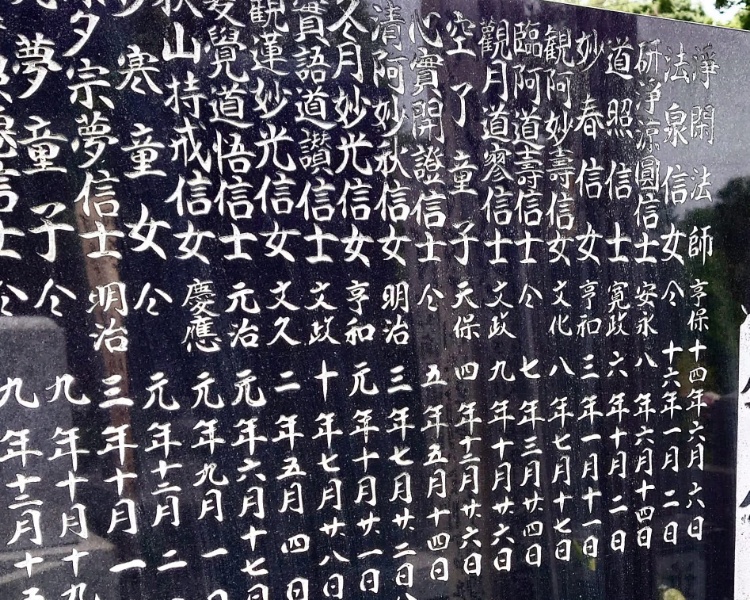 淨閑法師 享保十四年六月六日
法泉信女 仝十六年一月二日
研淨涼圓信士 安永八年六月十四日
道照信士 寛政六年十月二日
妙春信女 享和三年一月十一日
観阿妙壽信女 文化八年七月十七日
臨阿道壽信士 仝七年三月廿四日
觀月道廖信士 文政九年十月廿六日
空了童子 天保四年十二月廿六日
心實開證信士 仝五年五月十四日
清阿妙秋信女 明治三年七月廿二日
月妙光信女 享和元年十月廿一日
實語道讃信士 文政十年七月廿八日
觀蓮妙光信女 文久二年五月四日
覺道悟信士 元治元年六月十七日
秋山持戒信女 慶應元年九月一
寒童女 仝元年十二月二
夕宗夢信士 明治三年十月一
夢童子 仝九年十月十九
信士 仝九年十二月十